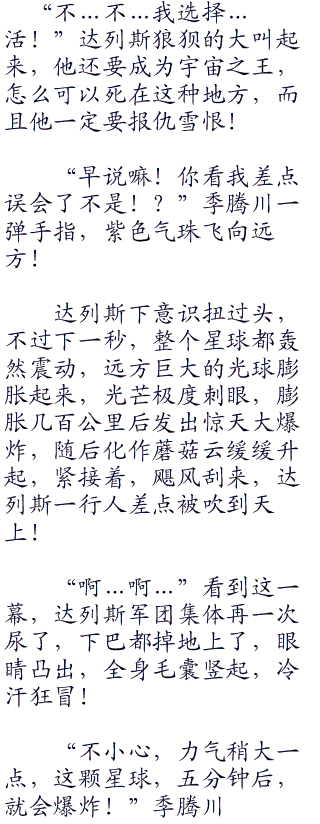 “不…不…我选择…
活！”达列斯狼狈的大叫起
来，他还要成为宇宙之王，
怎么可以死在这种地方，而
且他一定要报仇雪恨！
“早说嘛！你看我差点
误会了不是！？”季腾川一
弹手指，紫色气珠飞向远
方！
达列斯下意识扭过头，
不过下一秒，整个星球都轰
然震动，远方巨大的光球膨
胀起来，光芒极度刺眼，膨
胀几百公里后发出惊天大爆
炸，随后化作蘑菇云缓缓升
起，紧接着，飓风刮来，达
列斯一行人差点被吹到天
上！
“啊…啊…”看到这一
幕，达列斯军团集体再一次
尿了，下巴都掉地上了，眼
睛凸出，全身毛囊竖起，冷
汗狂冒！
“不小心，力气稍大一
点，这颗星球，五分钟后，
就会爆炸！”季腾川